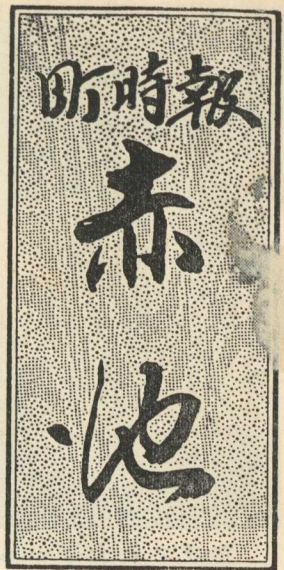 町時報
赤池